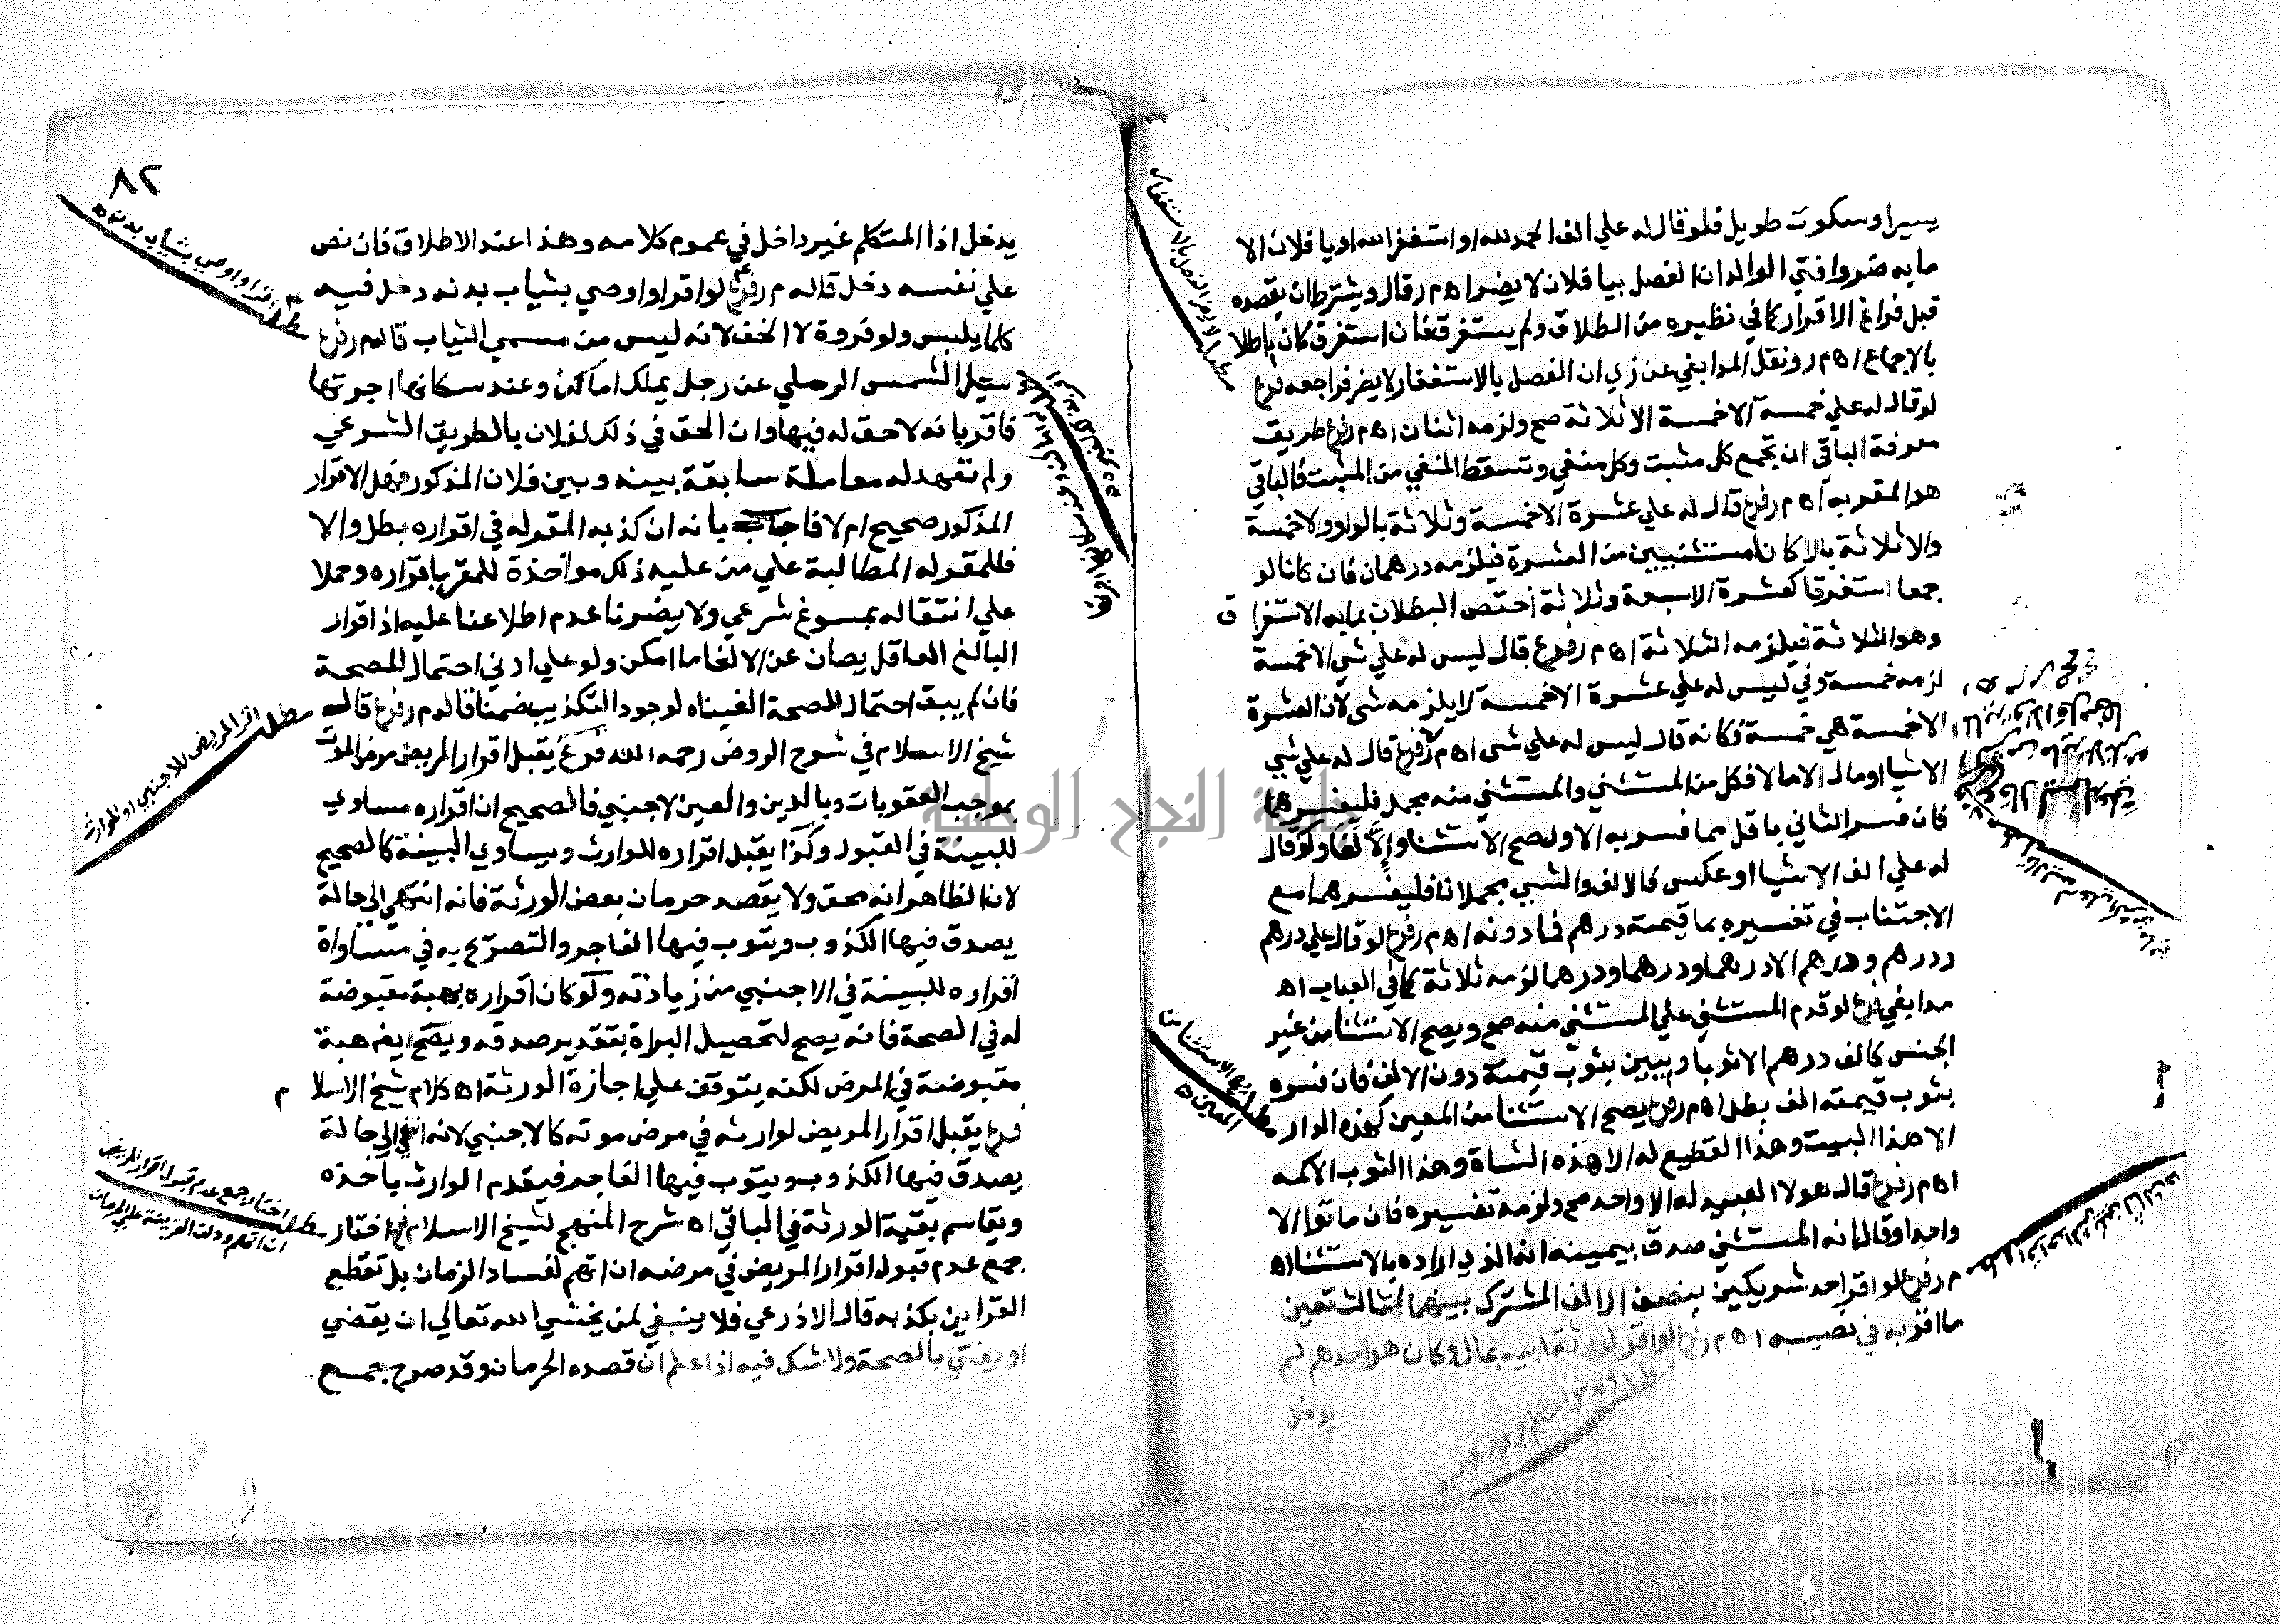 يسيرا وسكوت طويل فلو قال له علي الف الحمد لله او استغفر الله او يا فلان الا
مايه ضر وافتي الوالد ان الفصل بيا فلان لا يضر اه م ر قال ويشترط ان يقصده
قبل فراغ الاقرار كما في نظيره من الطلاق ولم يستغرق فان استغرق كان باطلا
بالاجماع اه م ر ونقل المدابغي عن ز ي ان الفصل بالاستغفار لا يضر فراجعه فرع
لو قال له علي خمسة الا خمسة الا ثلاثة صح ولزمه اثنان اه م ر فرع طريق
معرفة الباقي ان تجمع كل مثبت وكل منفي وتسقط المنفي من المثبت فالباقي
هو المقر به اه م ر فرع قال له علي عشرة الا خمسة وثلاثة بالواو والا خمسة
والا ثلاثة بالا كانا مستثنيين من العشرة فيلزمه درهمان فان كانا لو
جمعا استغرقا كعشرة الا سبعة وثلاثة اختص البطلان بما به الاستغرا ق
وهو الثلاثة فيلزمه الثلاثة اه م ر فرع قال ليس له علي شي الا خمسة
لزمه خمسة وفي ليس له علي عشرة الا خمسة لا يلزمه شي لان العشرة
الا خمسة هي خمسة فكانه قال ليس له علي شي اه م ر فرع قال له علي شي
الا شيا او مال الا مالا فكل من المستثني والمستثني منه مجمل فليفسرهما
فان فسر الثاني باقل مما فسر به الاول صح الاستثنا والا لغا ولو قال
له علي الف الا شيا او عكس فالالف والشي مجملان فليفسرهما مع
الاجتناب في تفسيره بما قيمته درهم فما دونه اه م ر فرع لو قال علي درهم
ودرهم ودرهم الا درهما ودرهما ودرهما لزمه ثلاثة كما في العباب اه
مدابغي فرع لو قدم المستثني علي المستثني منه صح ويصح الاستثنا من غير
الجنس كالف درهم الا ثوبا ويبين بثوب قيمته دون الالف فان فسره
بثوب قيمته الف بطل اه م ر فرع يصح الاستثنا من المعين كهذه الدار
الا هذا البيت وهذا القطيع له الا هذه الشاة وهذا الثوب الا كمه
اه م ر فرع قال هولا العبيد له الا واحد صح ولزمه تفسيره فان ماتوا الا
واحدا وقال انه المستثني صدق بيمينه انه الذي اراده بالاستثنا اه
م ر فرع لو اقر احد شريكين بنصف الالف المشترك بينهما لثالث تعين
ما اقر به في نصيبه اه م ر فرع لو اقر لورثة ابيه بمال وكان هو احدهم لم
يدخل
مطلب لا يضر الفصل بالاستغفار
مطلب يصح الاستثنا من
المعين اه
٨٢
يدخل اذ المتكلم غير داخل في عموم كلامه وهذا عند الاطلاق فان نص
علي نفسه دخل قاله م ر فرع لو اقر او اوصي بثياب بدنه دخل فيه
كلما يلبس ولو فروة لا الخف لانه ليس من مسمي الثياب قاله م ر فرع
سيل الشمس الرملي عن رجل يملك اماكن وعند سكانها اجرتها
فاقر بانه لا حق له فيها وان الحق في ذلك لفلان بالطريق الشرعي
ولم تعهد له معاملة سابقة بينه وبين فلان المذكور فهل الاقرار
المذكور صحيح ام لا فاجاب بانه ان كذبه المقر له في اقراره بطل والا
فللمقر له المطالبة علي من عليه ذلك مواخذة للمقر باقراره وحملا
علي انتقاله بمسوغ شرعي ولا يضرنا عدم اطلاعنا عليه اذ اقرار
البالغ العاقل يصان عن الالغا ما امكن ولو علي ادني احتمال للصحة
فان لم يبق احتمال للصحة الغيناه لوجود التكذيب ضمنا قاله م ر فرع قال
شيخ الاسلام في شرح الروض رحمه الله فرع يقبل اقرار المريض مرض الموت
بموجب العقوبات وبالدين والعين لاجنبي فالصحيح ان اقراره مساوي
للبينة في القبول وكذا يقبل اقراره للوارث ويساوي البينة كالصحيح
لان الظاهر انه محق ولا يقصد حرمان بعض الورثة فانه انتهي الي حالة
يصدق فيها الكذوب ويتوب فيها الفاجر والتصريح به في مساواة
اقراره للبينة في الاجنبي من زيادته ولو كان اقراره بهبة مقبوضة
له في الصحة فانه يصح لتحصيل البراة بتقدير صدقه ويصح ايضا هبة
مقبوضة في المرض لكنه يتوقف علي اجازة الورثة اه كلام شيخ الاسلا م
فرع يقبل اقرار المريض لوارثه في مرض موته كالاجنبي لانه انتهي الي حالة
يصدق فيها الكذوب ويتوب فيها الفاجر فيقدم الوارث باخذه
ويقاسم بقية الورثة في الباقي اه شرح المنهج لشيخ الاسلام فرع اختار
جمع عدم قبول اقرار المريض في مرضه ان اتهم لفساد الزمان بل تقطع
القراين بكذبه قال الاذرعي فلا ينبغي لمن يخشي الله تعالي ان يقضي
او يفتي بالصحة ولا شك فيه اذا علم ان قصده الحرمان وقد صرح جمع
مطلب اقر او اوصي بثياب بدنه اه
مطلب اقرار المريض للاجنبي او للوارث
مطلب اختار جمع عدم قبول اقرار المريض
ان اتهم ودلت القرينة علي الحرمان
جامعة النجاح الوطنية